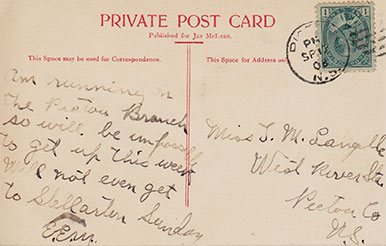 PRIVATE POST CARD
Published for Jas McLean.
This Space may be used for Correspondence.
This Space for Address on
am running on
the Pictou Branch
so will be
to get up this week
Will not even get
to Stellarton Sunday
PICTOU
PM
SP
08
N.S.
1
1
Miss T. M. Langille
West River Sta
Pictou Co
N.S.